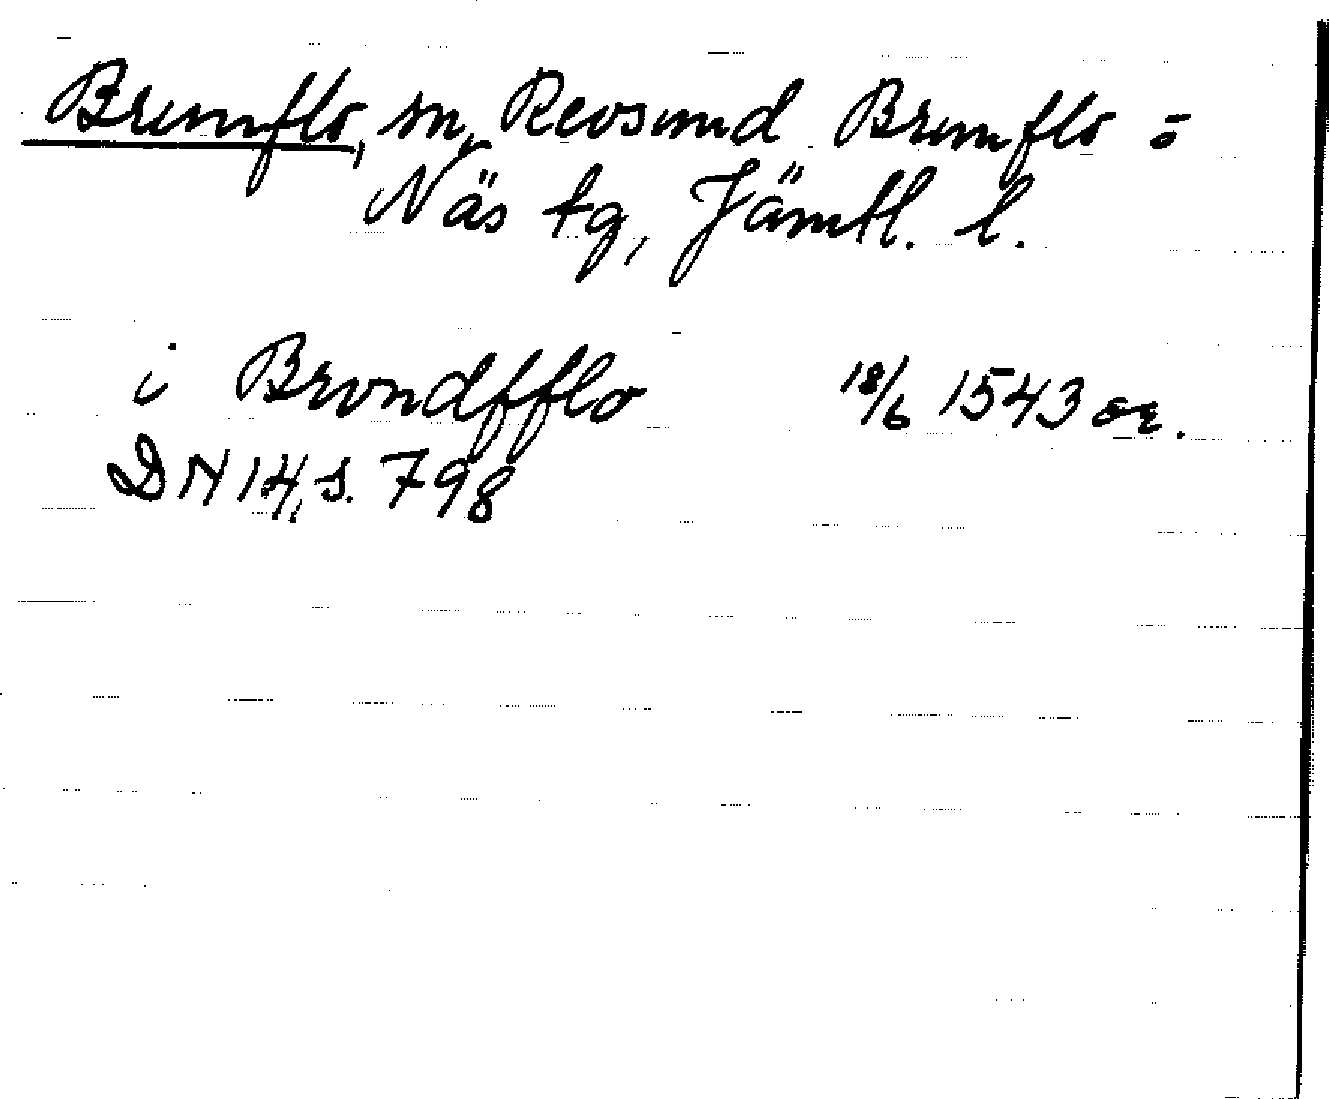 Brunflo, sn, Revsund Brunflo o
Näs tg, Jämtl. l.
i Brvndfflo 18/6 1543 or.
DN 14, s. 798